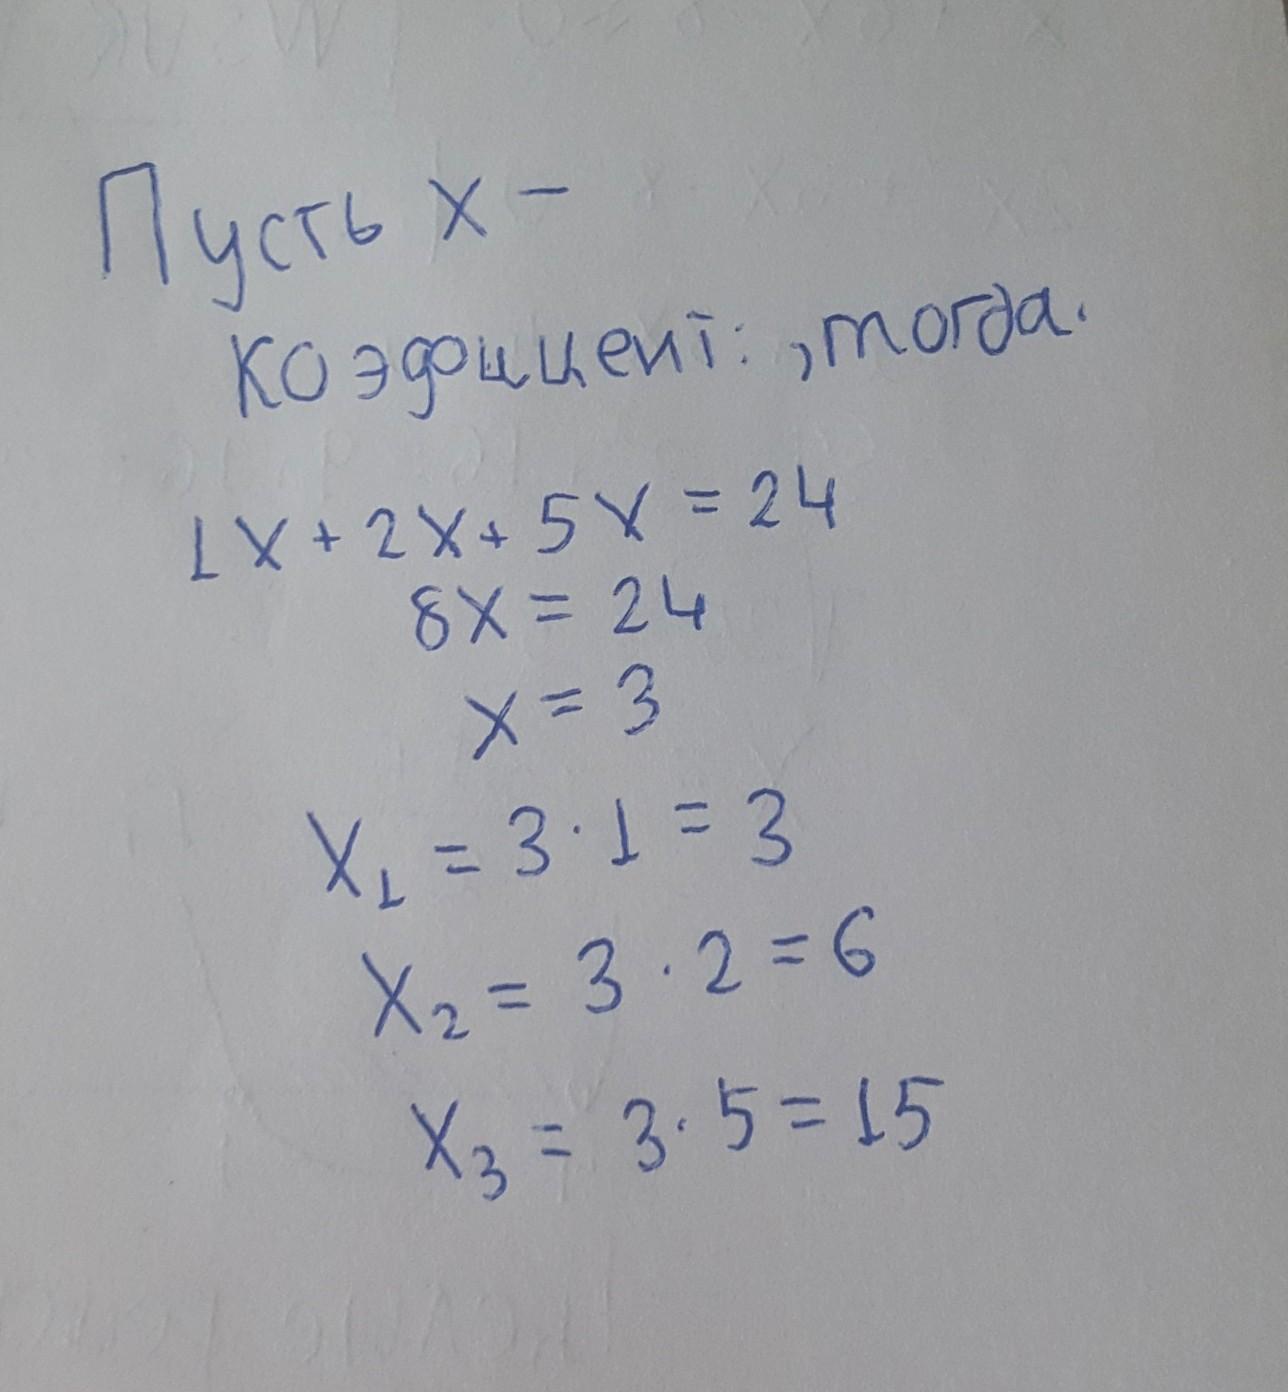 Пусть x –
коэфициент: , тогда.
1x + 2x + 5x = 24
8x = 24
x = 3
x₁ = 3 · 1 = 3
x₂ = 3 · 2 = 6
x₃ = 3 · 5 = 15